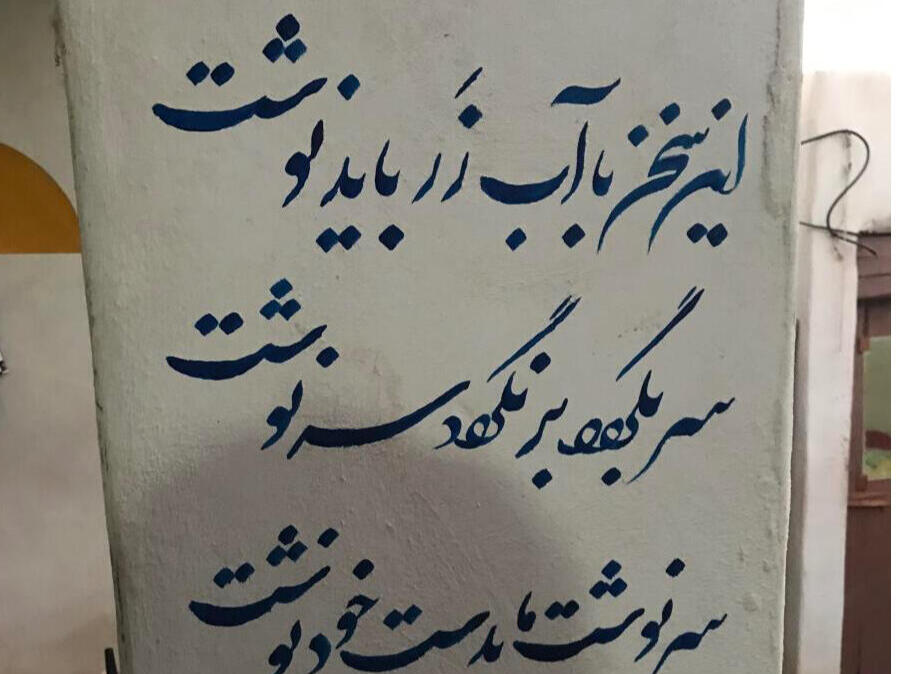 این سخن با آب زَر باید نوشت
سر بگردد بر نگردد سر نوشت
سر نوشت ما بدست خود نوشت